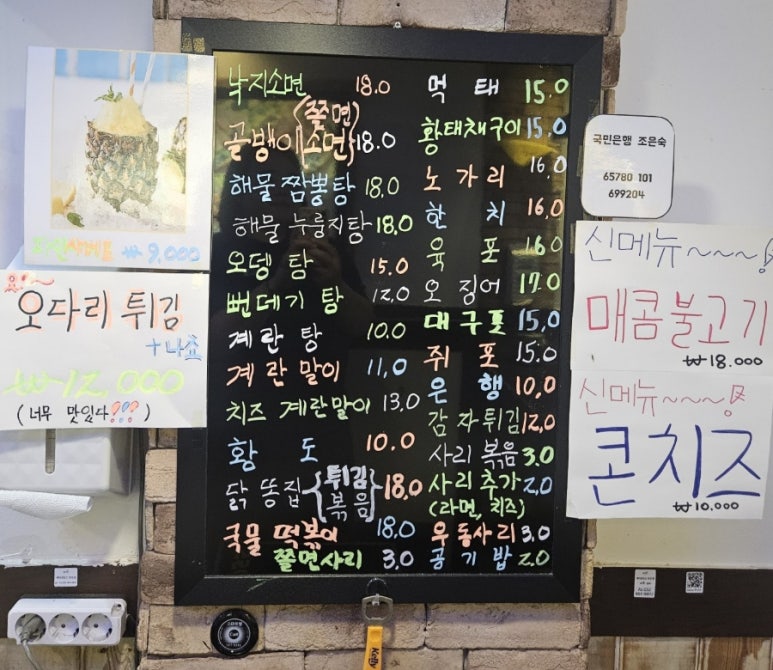 낙지소면 18.0
골뱅이 (쫄면 소면) 18.0
해물 짬뽕탕 18.0
해물 누룽지탕 18.0
오뎅 탕 15.0
뻔데기 탕 12.0
계란 탕 10.0
계란말이 11,0
치즈 계란말이 13.0
황 도 10.0
닭 똥집 {튀김 볶음} 18.0
국물 떡볶이 18.0
쫄면사리 3.0
먹 태 15.0
황태채구이 15.0
노가리 16.0
한 치 16.0
육 포 16.0
오징어 17.0
대구포 15.0
쥐 포 15.0
은 행 10,0
감자튀김 12.0
사리 볶음 3.0
사리 추가 2.0
(라면, 치즈)
우동사리 3.0
공기밥 2.0
₩ 9,000
오다리 튀김
+나쵸
₩ 12,000
(너무 맛있다!!!)
국민은행 조은숙
65780 101
699204
신메뉴~~~
매콤불고기
₩18.000
신메뉴~~~
콘치즈
₩10.000